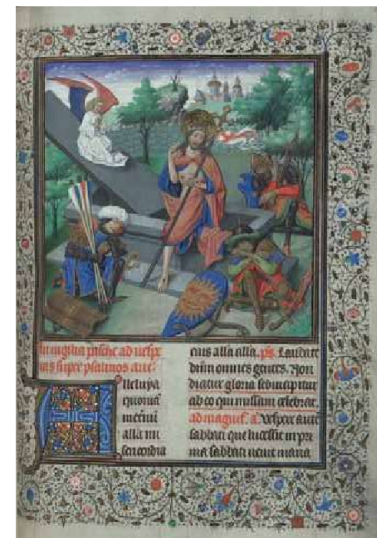 In vigilia pasche ad vesp
as super psalmos ant
Alleluya
quonia
in eterni
alla mi
sericordia
eius alla alla. ps. Laudate
dnm omnes gentes. Non
dicitur gloria sed incipitur
ab eo qui missam celebrat.
ad magnif. a. Vespere aute
sabbati que lucessit in pri
ma sabbati venit maria